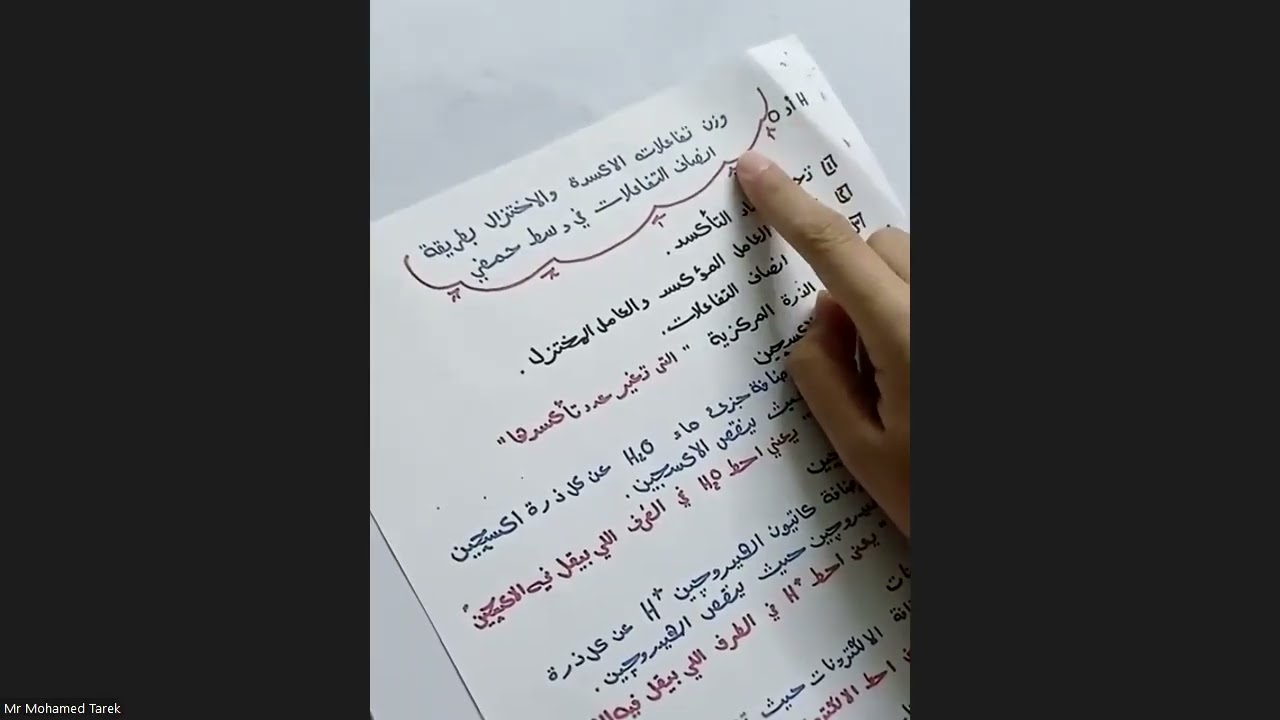 H أو O
وزن تفاعلات الاكسدة والاختزال بطريقة
انصاف التفاعلات في وسط حمضي
1 التأكسد.
2 العامل المؤكسد والعامل المختزل.
3 انصاف التفاعلات.
الذرة المركزية " التى تغير عدد تأكسدها "
الاكسجين
جزئ ماء H₂O عن كل ذرة اكسجين
حيث ينقص الاكسجين.
" يعني احط H₂O في الطرف اللي بيقل فيه الاكسجين "
كاتيون الهيدروچين H⁺ عن كل ذرة
حيث ينقص الهيدروچين.
" يعني احط H⁺ في الطرف اللي بيقل فيه
الالكترونات حيث
احط
Mr Mohamed Tarek